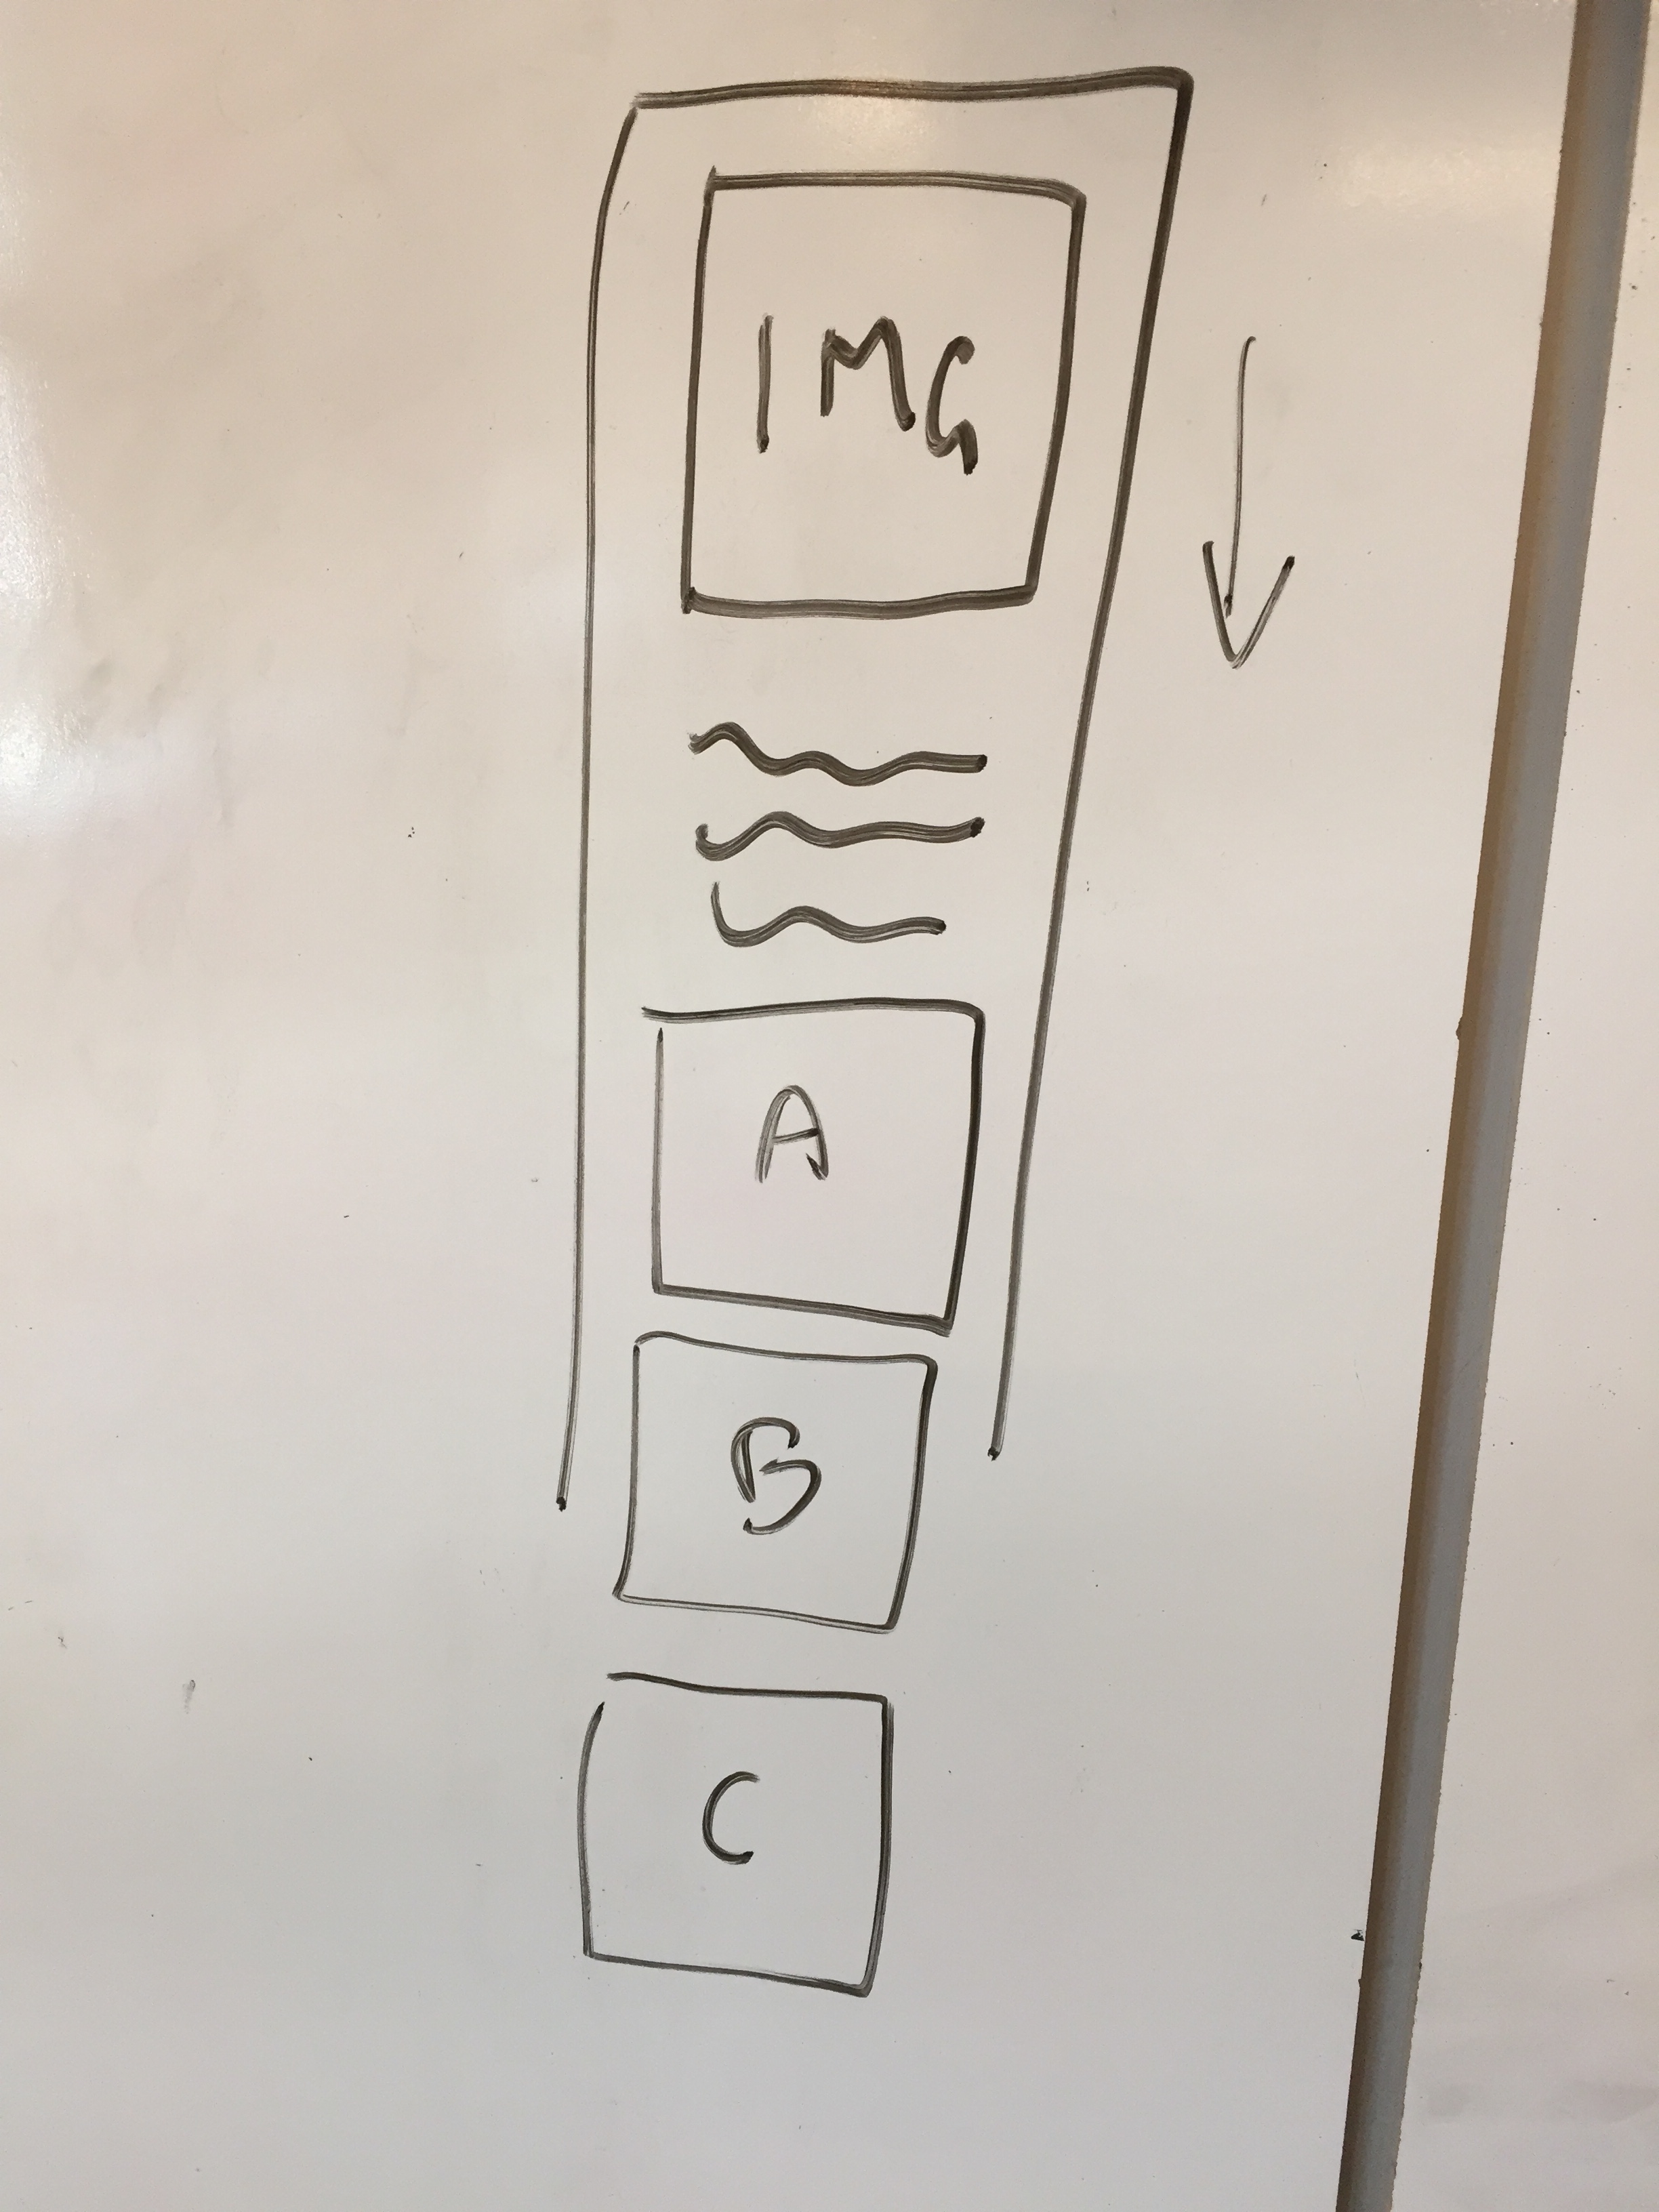 IMG
A
B
C